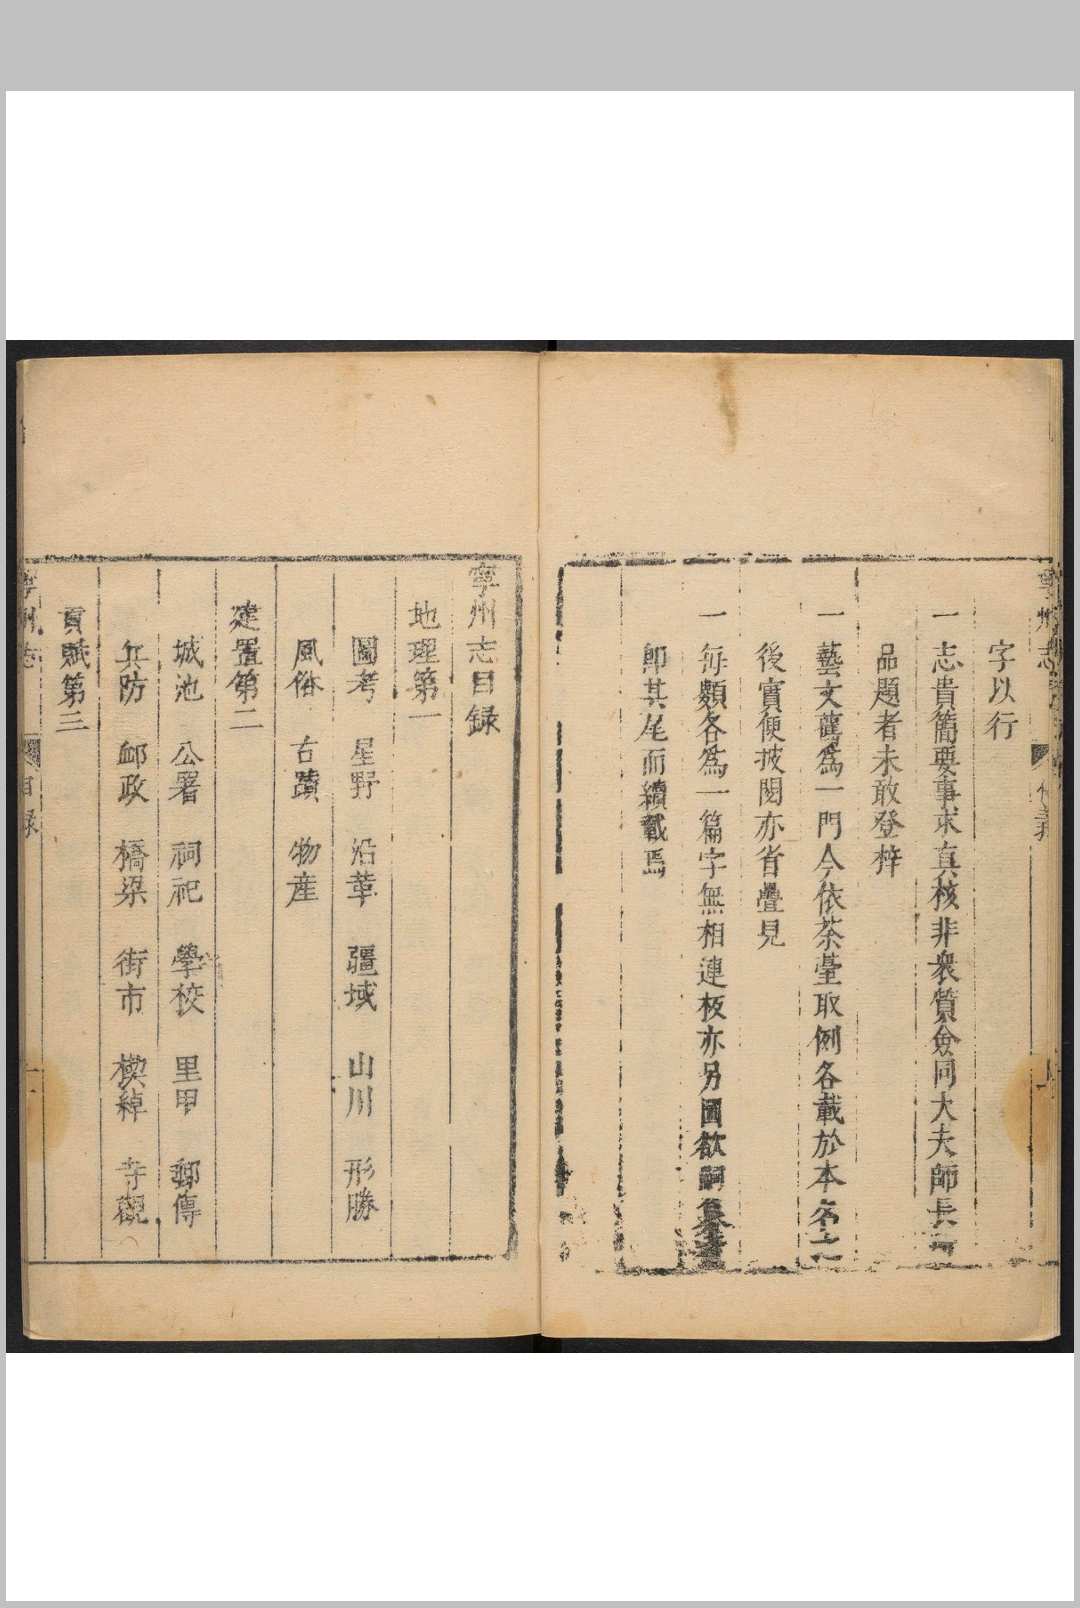 字以行
一志貴簡要事求真核非衆質僉同大夫師長
品題者未敢登梓
一藝文舊爲一門今依茶臺取例各載於本
後實便披閱亦省疊見
一每類各爲一篇字無相連板亦另
卽其尾而續載焉
寧州志目録
地理第一
圖考 星野 沿革 疆域 山川 形勝
風俗 古蹟 物産
建置第二
城池 公署 祠祀 學校 里甲 郵傳
兵防 卹政 橋梁 街市 楔綽 寺觀
貢賦第三
寧州志 目録